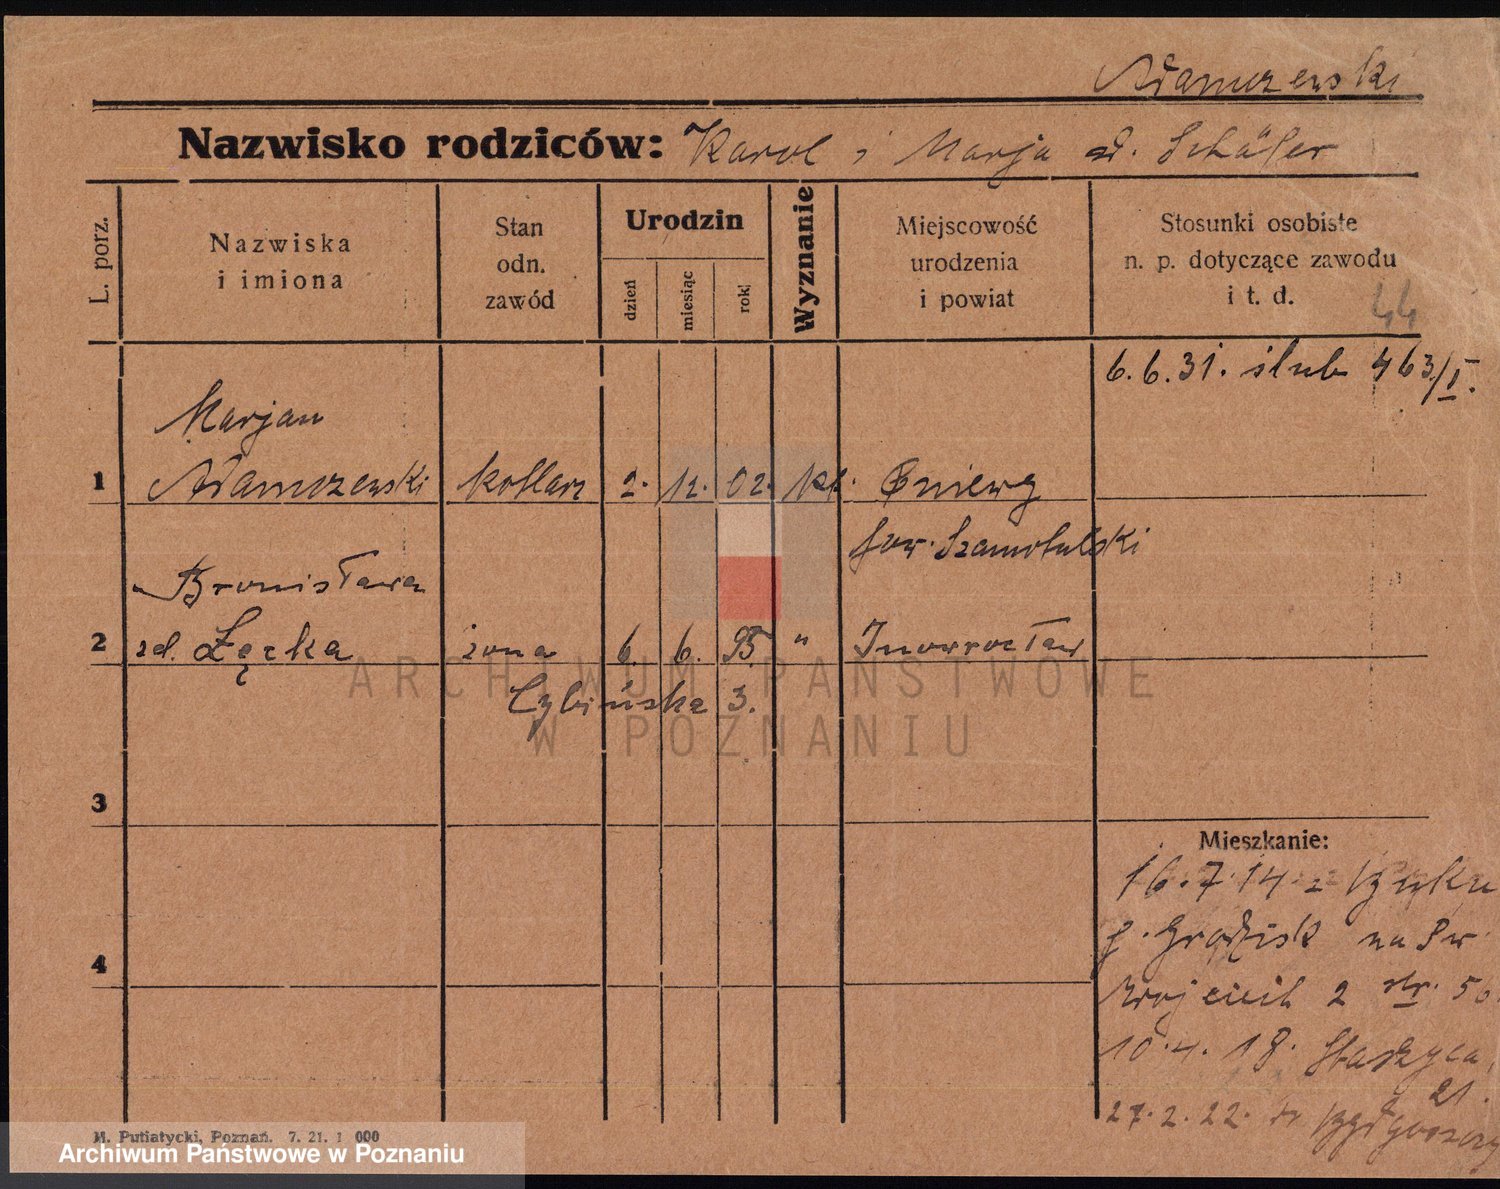 Adamczewski
Nazwisko rodziców: Karol i Marja d. Schäfer
L. porz.
Nazwiska
i imiona
Stan
odn.
zawód
Urodzin
dzień
miesiąc
rok
Wyznanie
Miejscowość
urodzenia
i powiat
Stosunki osobiste
n. p. dotyczące zawodu
i t. d.
44
6.6.31. ślub 463/I.
Marjan
1 Adamczewski kotlarz 2. 12. 02. kt.
pow. Szamotulski
Bronisława
2 zd. Łęcka żona 6. 6. 95 " Inowrocław
Cybińska 3.
3
Mieszkanie:
16.7.14. z
na Św
4
Wojciech 2 str. 50
10.4.18. Staszyca
21.
27.2.22. Bydgoszczy
M. Putiatycki, Poznań. 7. 21. 1 000
ARCHIWUM PAŃSTWOWE
W POZNANIU
Archiwum Państwowe w Poznaniu